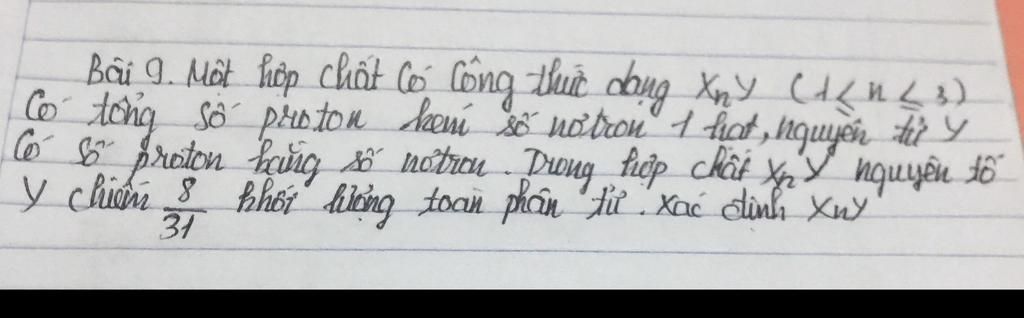 Bài 9. Một hợp chất có công thức dạng XnY (1 ≤ n ≤ 3)
Có tổng số proton kém số nơtron 1 hạt, nguyên tử Y
Có số proton bằng số nơtron. Trong hợp chất XnY nguyên tố
Y chiếm 8/31 khối lượng toàn phân tử. Xác định XnY